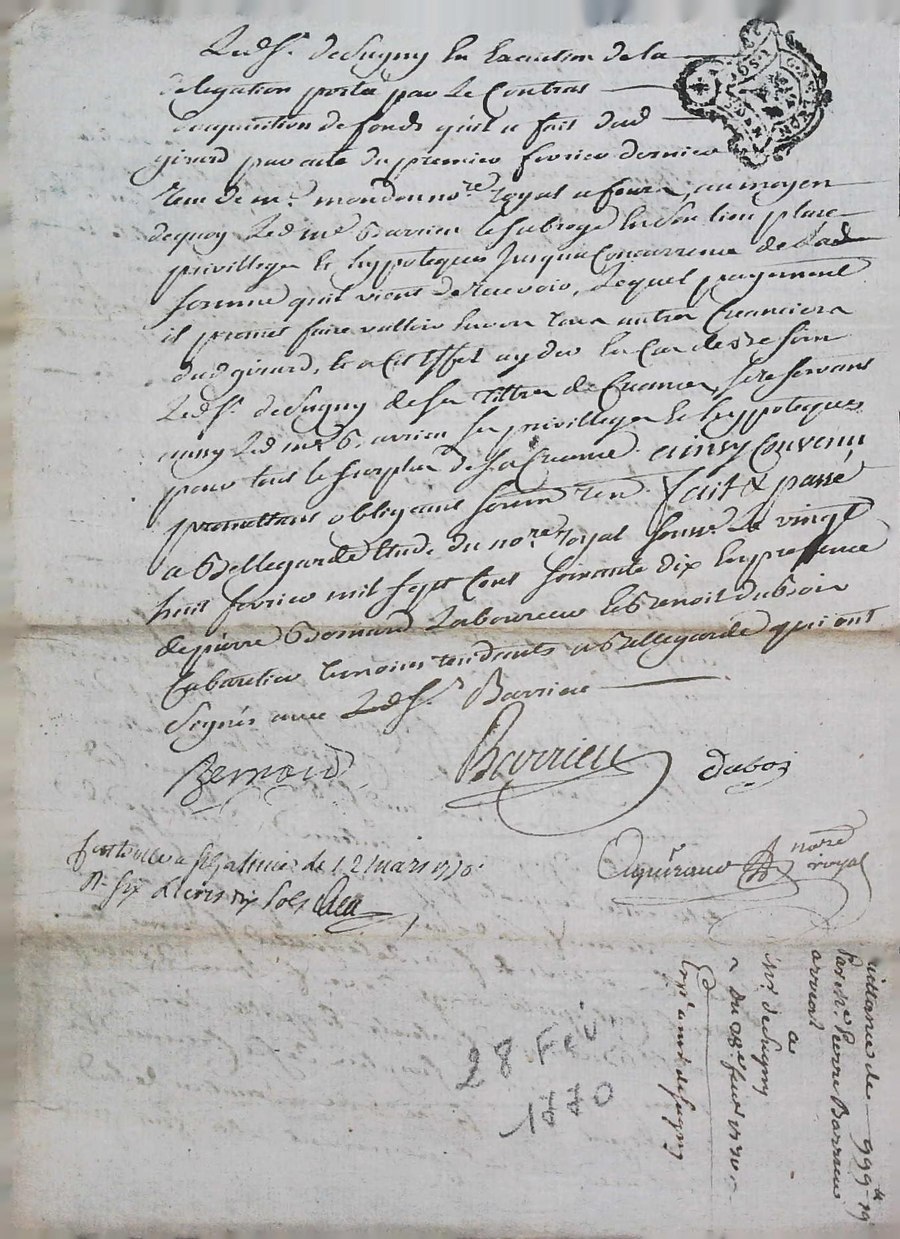 Led Sr. de Sugny en Execution de la
delegation portée par Le Contrat
d'acquisition de fonds qu'il a fait dud
girard par acte du premier fevrier dernier
recu de me. mondon nore royal a feurs, au moyen
dequoy Led me Barrieu le subroge en son lieu place
privilleges et hypoteques Jusqu'a Concurrence de Lad
somme qu'il vient de recevoir, Lequel payement
il promet faire valloir envers tous autres Creanciers
dud girard, et a Cet effet ayder en Cas de besoin
Led Sr. de Sugny de ses tittres de Creance, se reservant
aussy Led me Barrieu ses privilleges et hypoteques
pour tout le surplus de sa Creance. ainsy Convenu
promettant obligeant soum ren. fait & passé
a Bellegarde Etude du nore royal sousne. Le vingt
huit fevrier mil sept Cent soixante dix En presence
de pierre Bernard Laboureur et Benoit dubois
Cabaretier temoins residants a Bellegarde qui ont
signés avec Led Sr. Barrieu
Bernard Barrieu duboi
Controllé a St galmier le 12 mars 1770.
R. six Livres dix sols
nore royal
28 Fev
1770
quittance de 999 tt 19
Par Me Pierre Barrieu
a
Mr. de Sugny
du 28e fevrier 1770